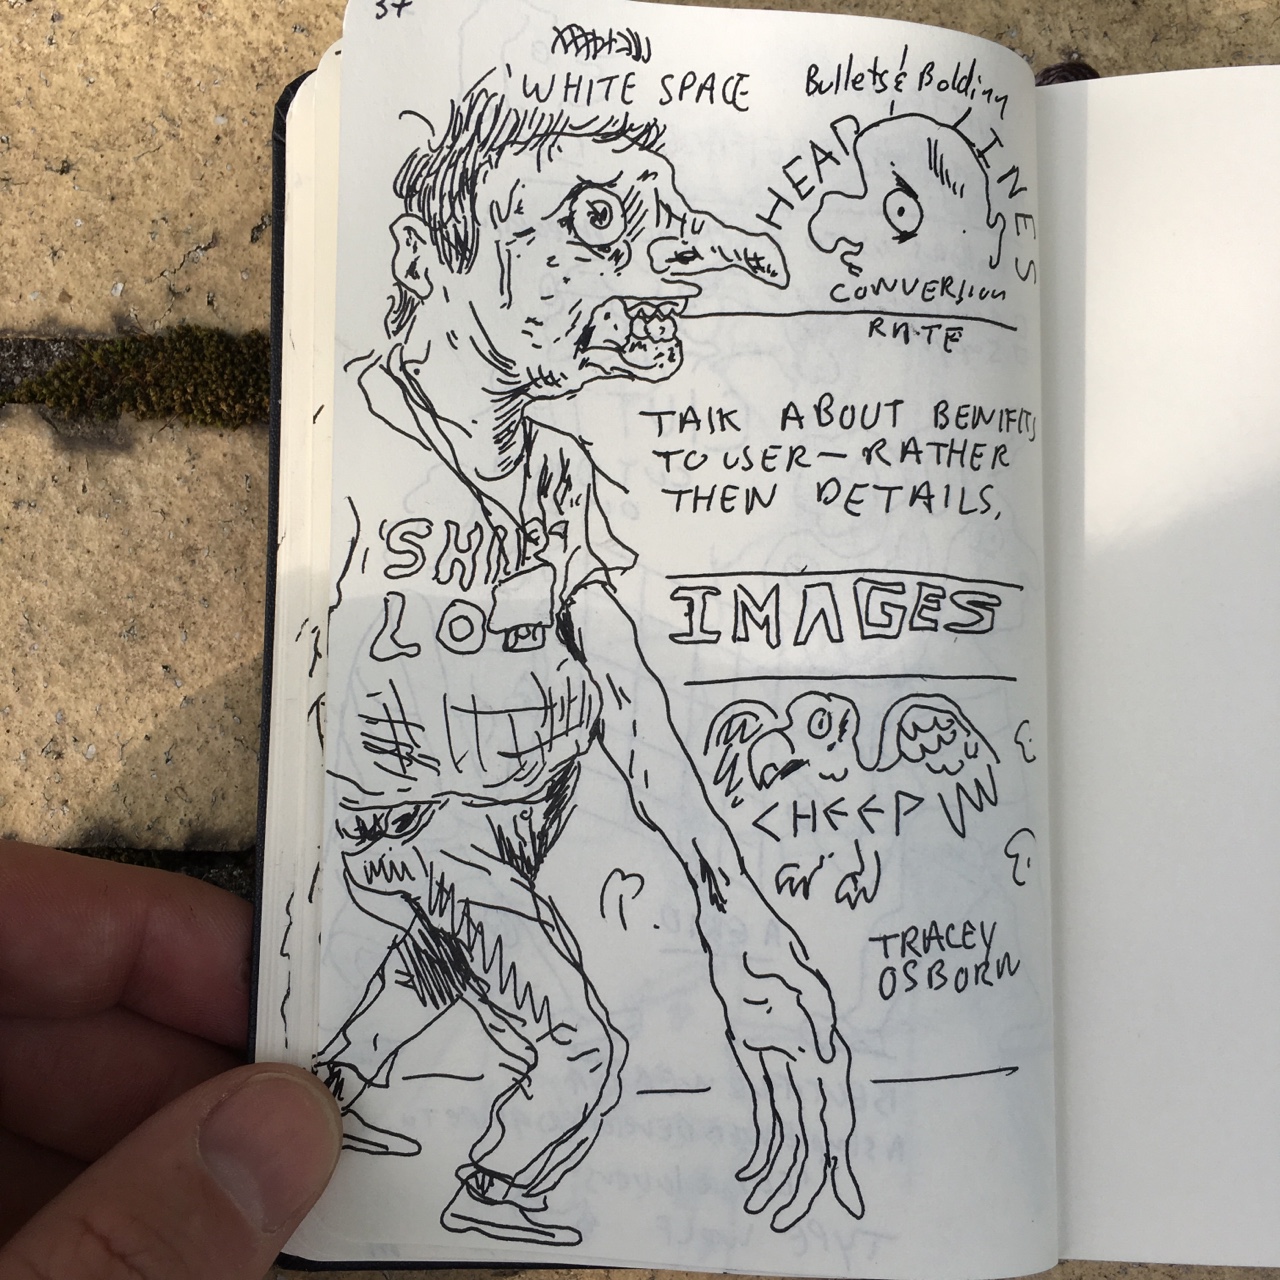 37
WHITE SPACE
Bullets & Bolding
HEADLINES
CONVERSION
RATE
TALK ABOUT BENIFITS
TO USER — RATHER
THEN DETAILS,
LO
IMAGES
CHEEP
TRACEY
OSBORN